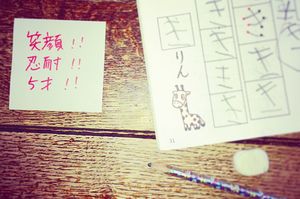 笑顔!!
忍耐!!
5才!!
き
りん
き
き
き
き
き
31